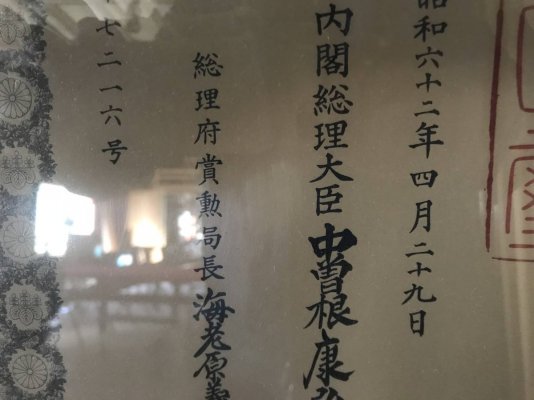 昭和六十二年四月二十九日
内閣総理大臣 中曽根康
総理府賞勲局長 海老原義
七二一六号